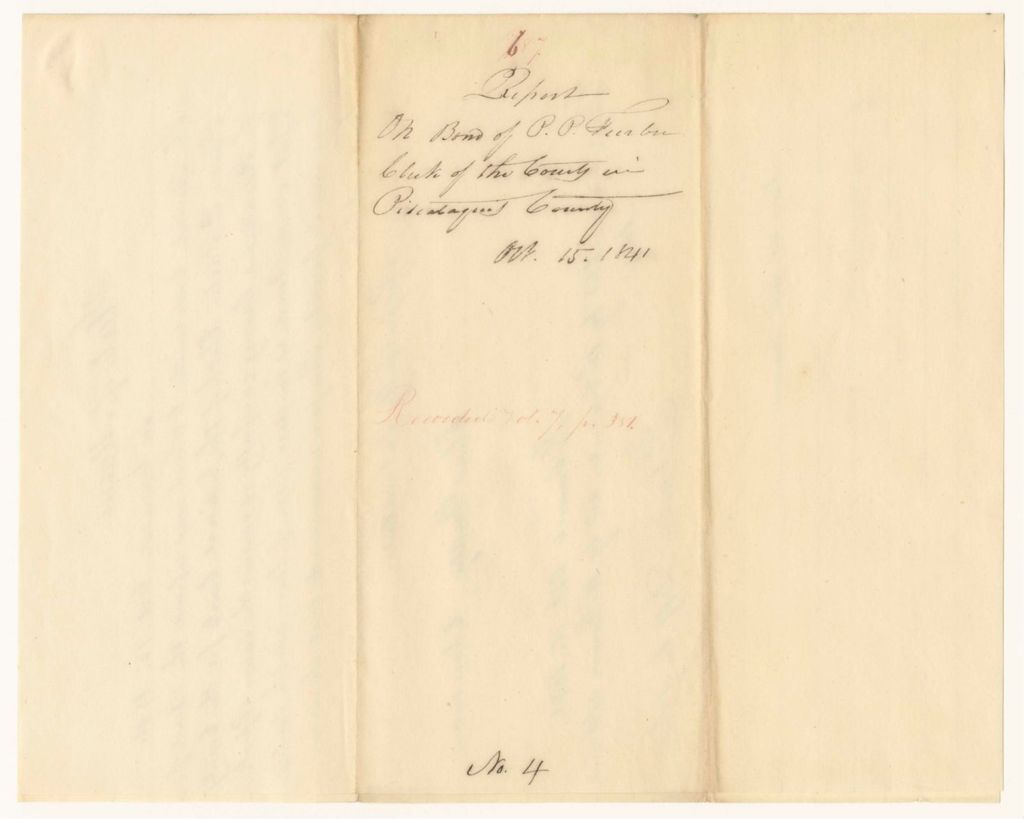 6
Report
On Bond of P. P. Furber
Clerk of the Courts in
Piscataquis County
Oct. 15. 1841
Recorded Vol. 7, p. 381.
No. 4